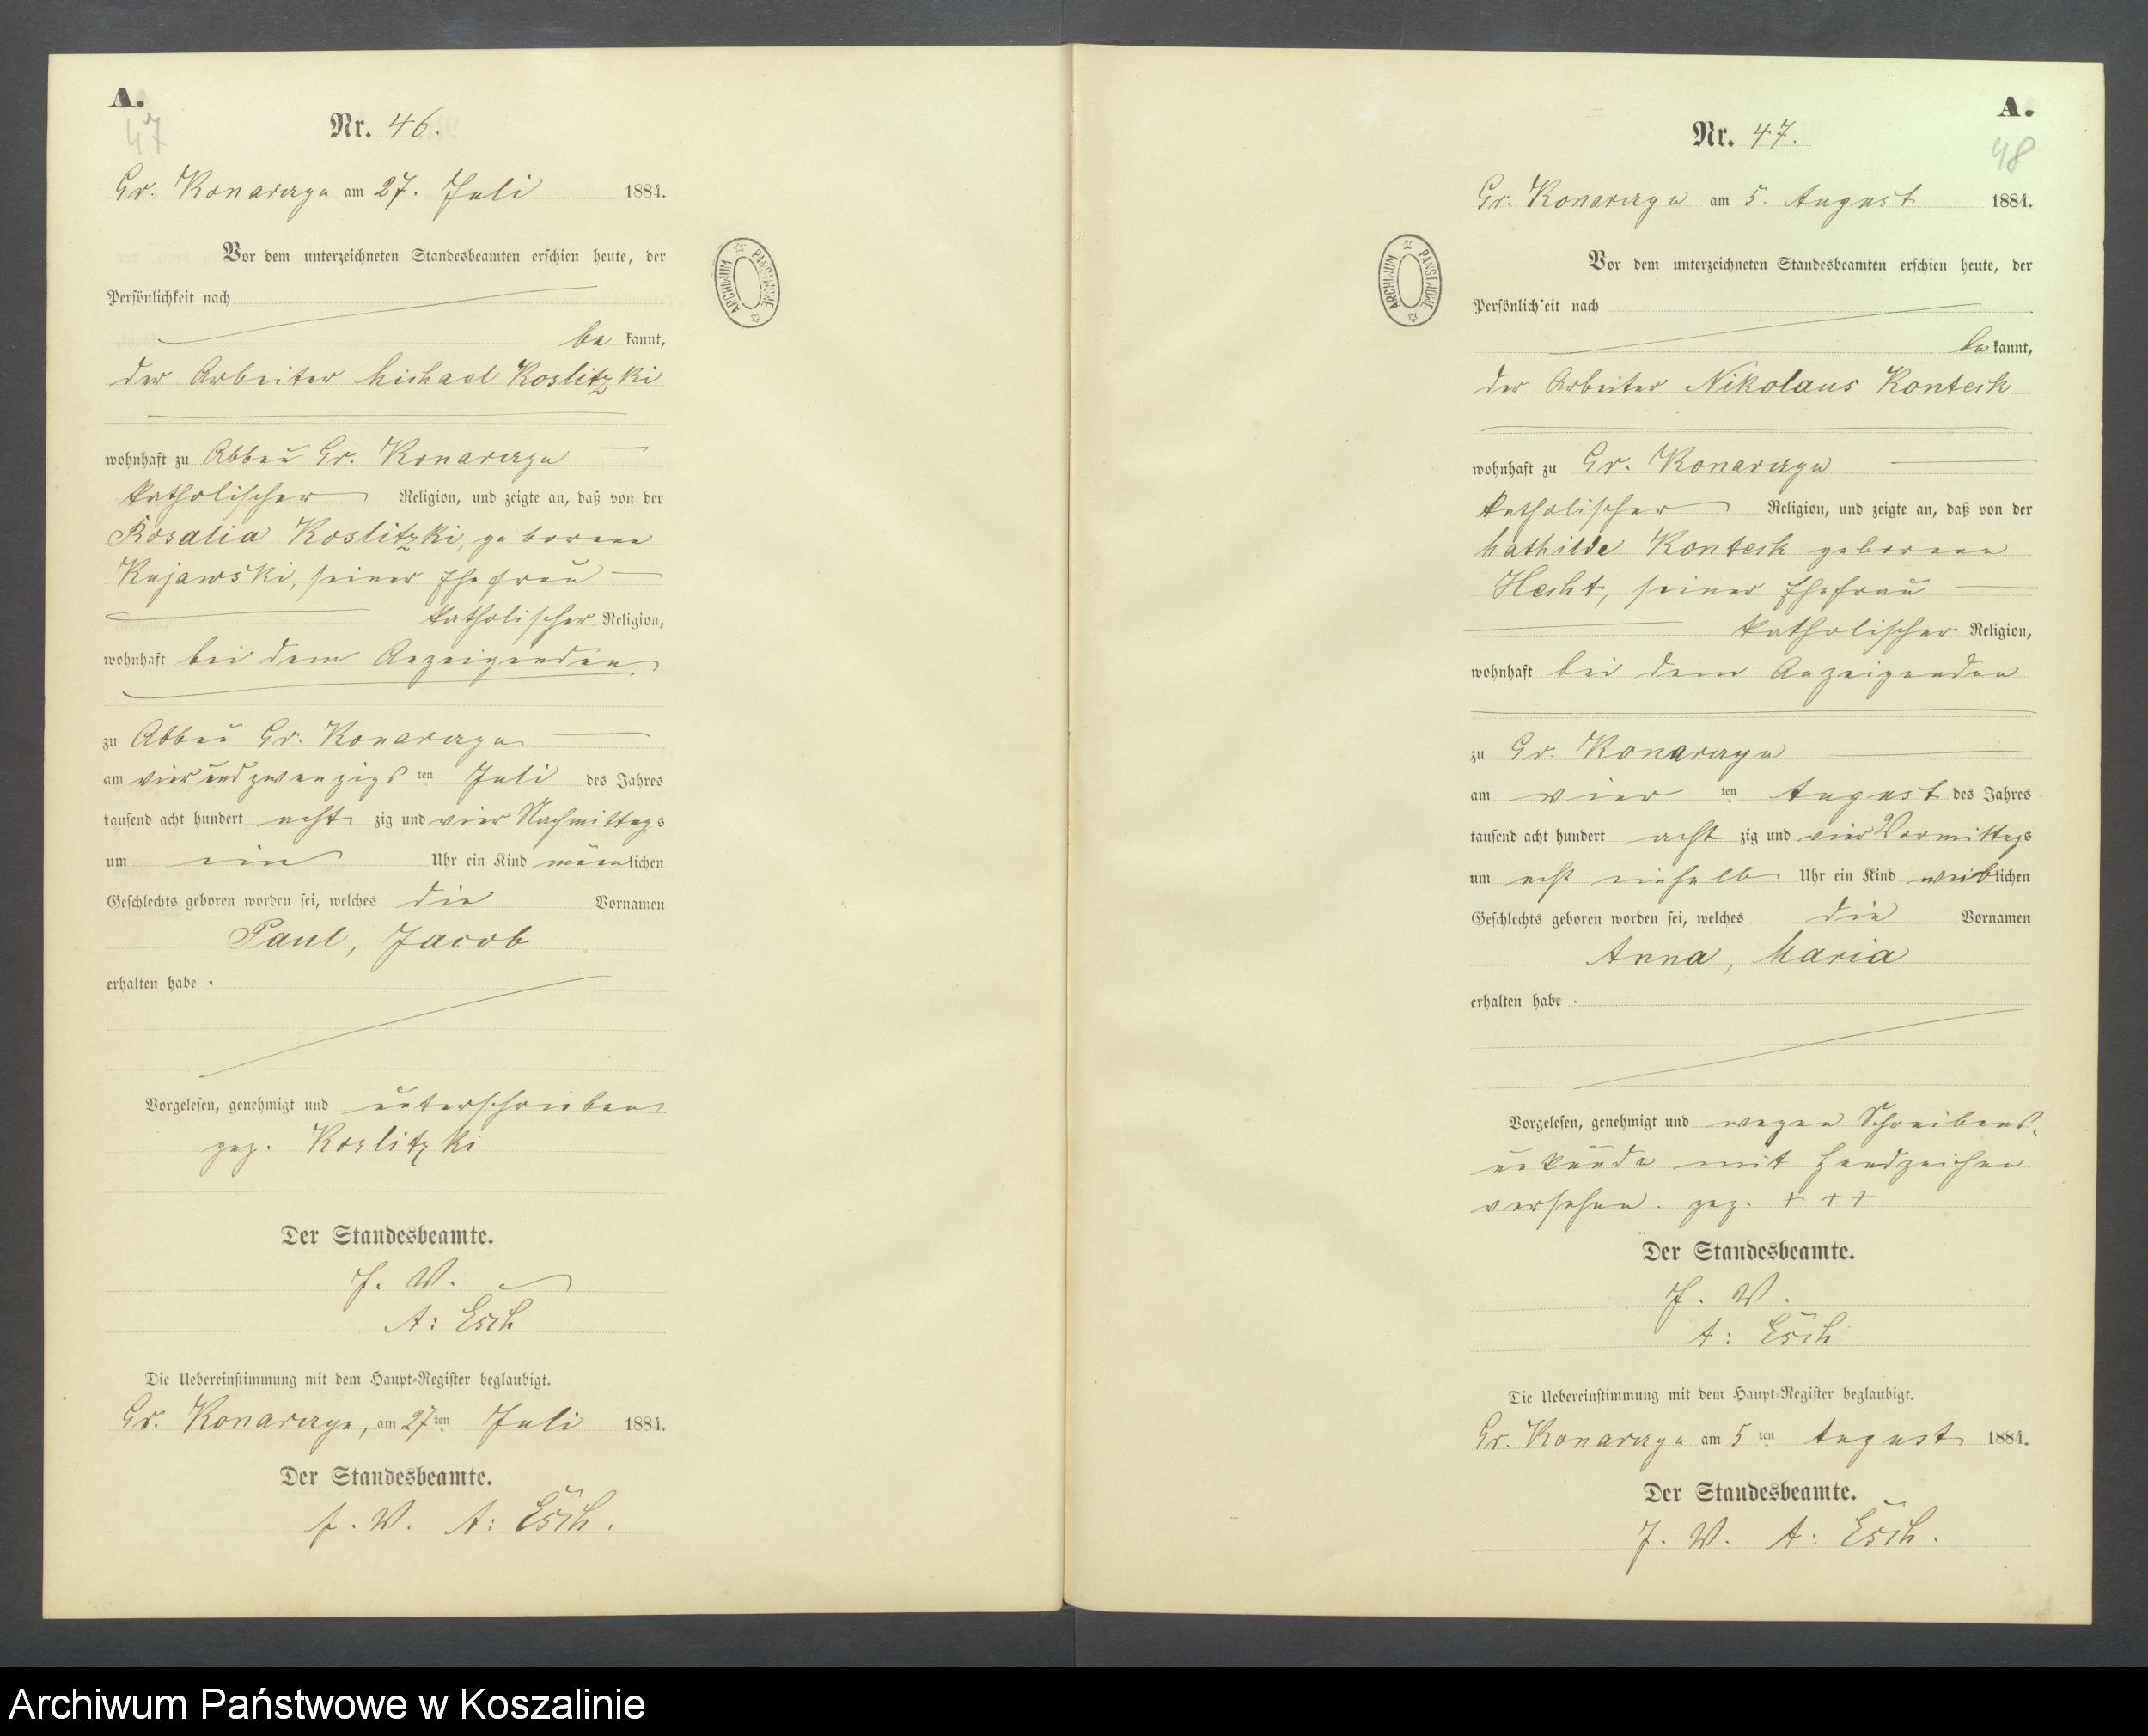 A.
47
Nr. 46.
Gr. Konarczyn am 27. Juli 1884.
Vor dem unterzeichneten Standesbeamten erschien heute, der
Persönlichkeit nach
be kannt,
der Arbeiter Michael Koslitzki
wohnhaft zu Abbau Gr. Konarczyn
katholischer Religion, und zeigte an, daß von der
Rosalia Koslitzki, geborene
Kujawski, seiner Ehefrau
katholischer Religion,
wohnhaft bei dem Anzeigenden
zu Abbau Gr. Konarczyn
am vierundzwanzigsten Juli des Jahres
tausend acht hundert acht zig und vier Nachmittags
um ein Uhr ein Kind männlichen
Geschlechts geboren worden sei, welches die Vornamen
Paul, Jacob
erhalten habe.
Vorgelesen, genehmigt und unterschrieben
gez. Koslitzki
Der Standesbeamte.
J. V.
A: Esch
Die Uebereinstimmung mit dem Haupt-Register beglaubigt.
Gr. Konarczyn, am 27ten Juli 1884.
Der Standesbeamte.
J. V. A: Esch.
ARCHIWUM PAŃSTWOWE
A.
48
Nr. 47.
Gr. Konarczyn am 5. August 1884.
Vor dem unterzeichneten Standesbeamten erschien heute, der
Persönlichkeit nach
be kannt,
der Arbeiter Nikolaus Konteck
wohnhaft zu Gr. Konarczyn
katholischer Religion, und zeigte an, daß von der
Mathilde Konteck geborene
Hecht, seiner Ehefrau
katholischer Religion,
wohnhaft bei dem Anzeigenden
zu Gr. Konarczyn
am vier ten August des Jahres
tausend acht hundert acht zig und vier Vormittags
um acht einhalb Uhr ein Kind weiblichen
Geschlechts geboren worden sei, welches die Vornamen
Anna, Maria
erhalten habe.
Vorgelesen, genehmigt und wegen Schreibens-
unkunde mit Handzeichen
versehen. gez. + + +
Der Standesbeamte.
J. V.
A: Esch
Die Uebereinstimmung mit dem Haupt-Register beglaubigt.
Gr. Konarczyn am 5 ten August 1884.
Der Standesbeamte.
J. V. A: Esch.
ARCHIWUM PAŃSTWOWE 2
Archiwum Państwowe w Koszalinie